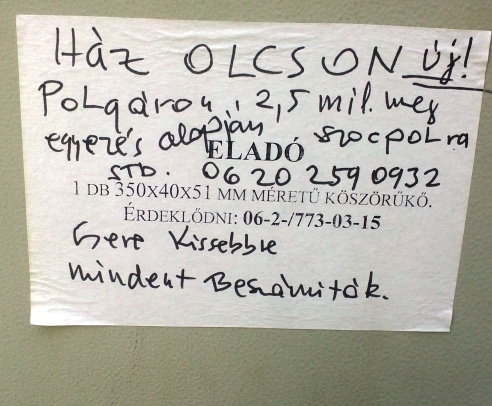 Ház OLCSON új!
Polgáron, 2,5 mil. meg
egyezés alapján szocpolra
ELADÓ
STB. 06 20 259 0932
1 DB 350X40X51 MM MÉRETŰ KÖSZÖRŰKŐ.
ÉRDEKLŐDNI: 06-2-/773-03-15
Csere Kissebbre
mindent Beszámitok.